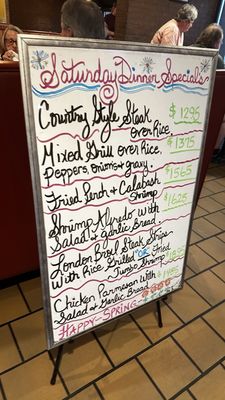 Saturday Dinner Specials
Country Style Steak
Over Rice.
$1295
Mixed Grill over Rice.
Peppers, onions & gravy.
$1375
Fried Perch & Calabash
Shrimp
$1565
Shrimp Alfredo with
Salad & garlic Bread.
$1625
London Broil Steak Strips
With Rice. Grilled or Fried
Jumbo Shrimp
Chicken Parmesan With
Salad & Garlic Bread
$1455
HAPPY-SPRING